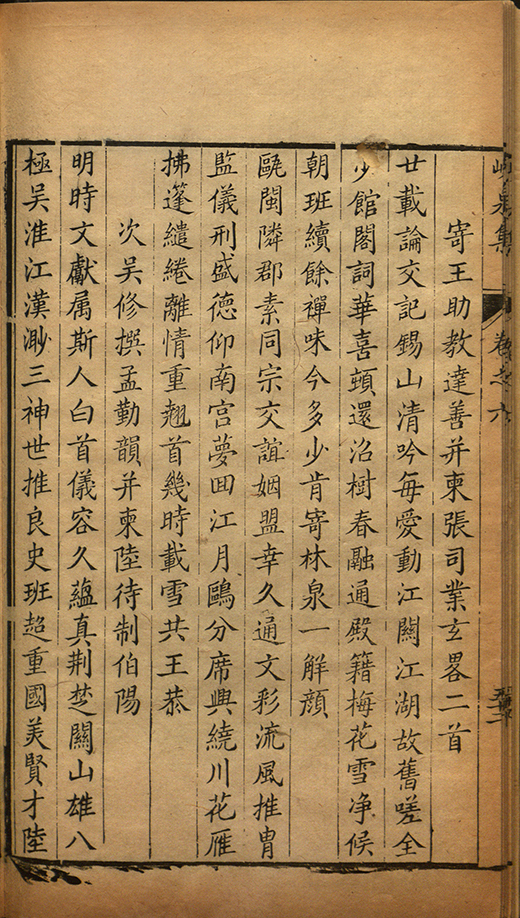 峴泉集 卷之六
寄王助教達善并柬張司業玄畧二首
廿載論交記錫山清吟每愛動江關江湖故舊嗟全
少館閣詞華喜頓還沼樹春融通殿籍梅花雪净候
朝班續餘禪味今多少肯寄林泉一解顔
甌閩隣郡素同宗交誼姻盟幸久通文彩流風推胄
監儀刑盛德仰南宫夢回江月鷗分席興繞川花雁
拂蓬繾綣離情重翹首幾時載雪共王恭
次吴修撰孟勤韻并柬陸待制伯陽
明時文獻属斯人白首儀容久蘊真荆楚關山雄八
極吴淮江漢渺三神世推良史班超重國美賢才陸